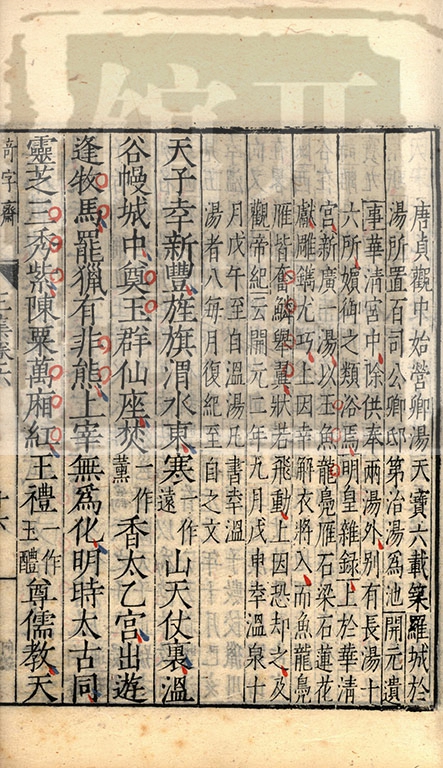 唐貞觀中始營卿湯天寶六載築羅城於
湯所置百司公卿邸第治湯為池開元遺
事華清宮中除供奉兩湯外别有長湯十
六所嬪御之類浴焉明皇雜錄上於華清
宮新廣一湯以玉魚龍鳧雁石梁石蓮花
獻雕鐫尤巧上因幸解衣將入而魚龍鳧
雁皆奮鱗舉翼狀若飛動上因恐却之及
觀帝紀云開元二年九月戊申幸溫泉十
月戊午至自溫湯凡書幸溫
湯者八每月復紀至自之文
天子幸新豐旌旗渭水東寒一作遠山天仗裹溫
谷幔城中奠玉群仙座焚一作薰香太乙宮出遊
逢牧馬罷獵有非熊上宰無爲化明時太古同
靈芝三秀紫陳粟萬廂紅王禮一作玉醴尊儒教天
奇字齋